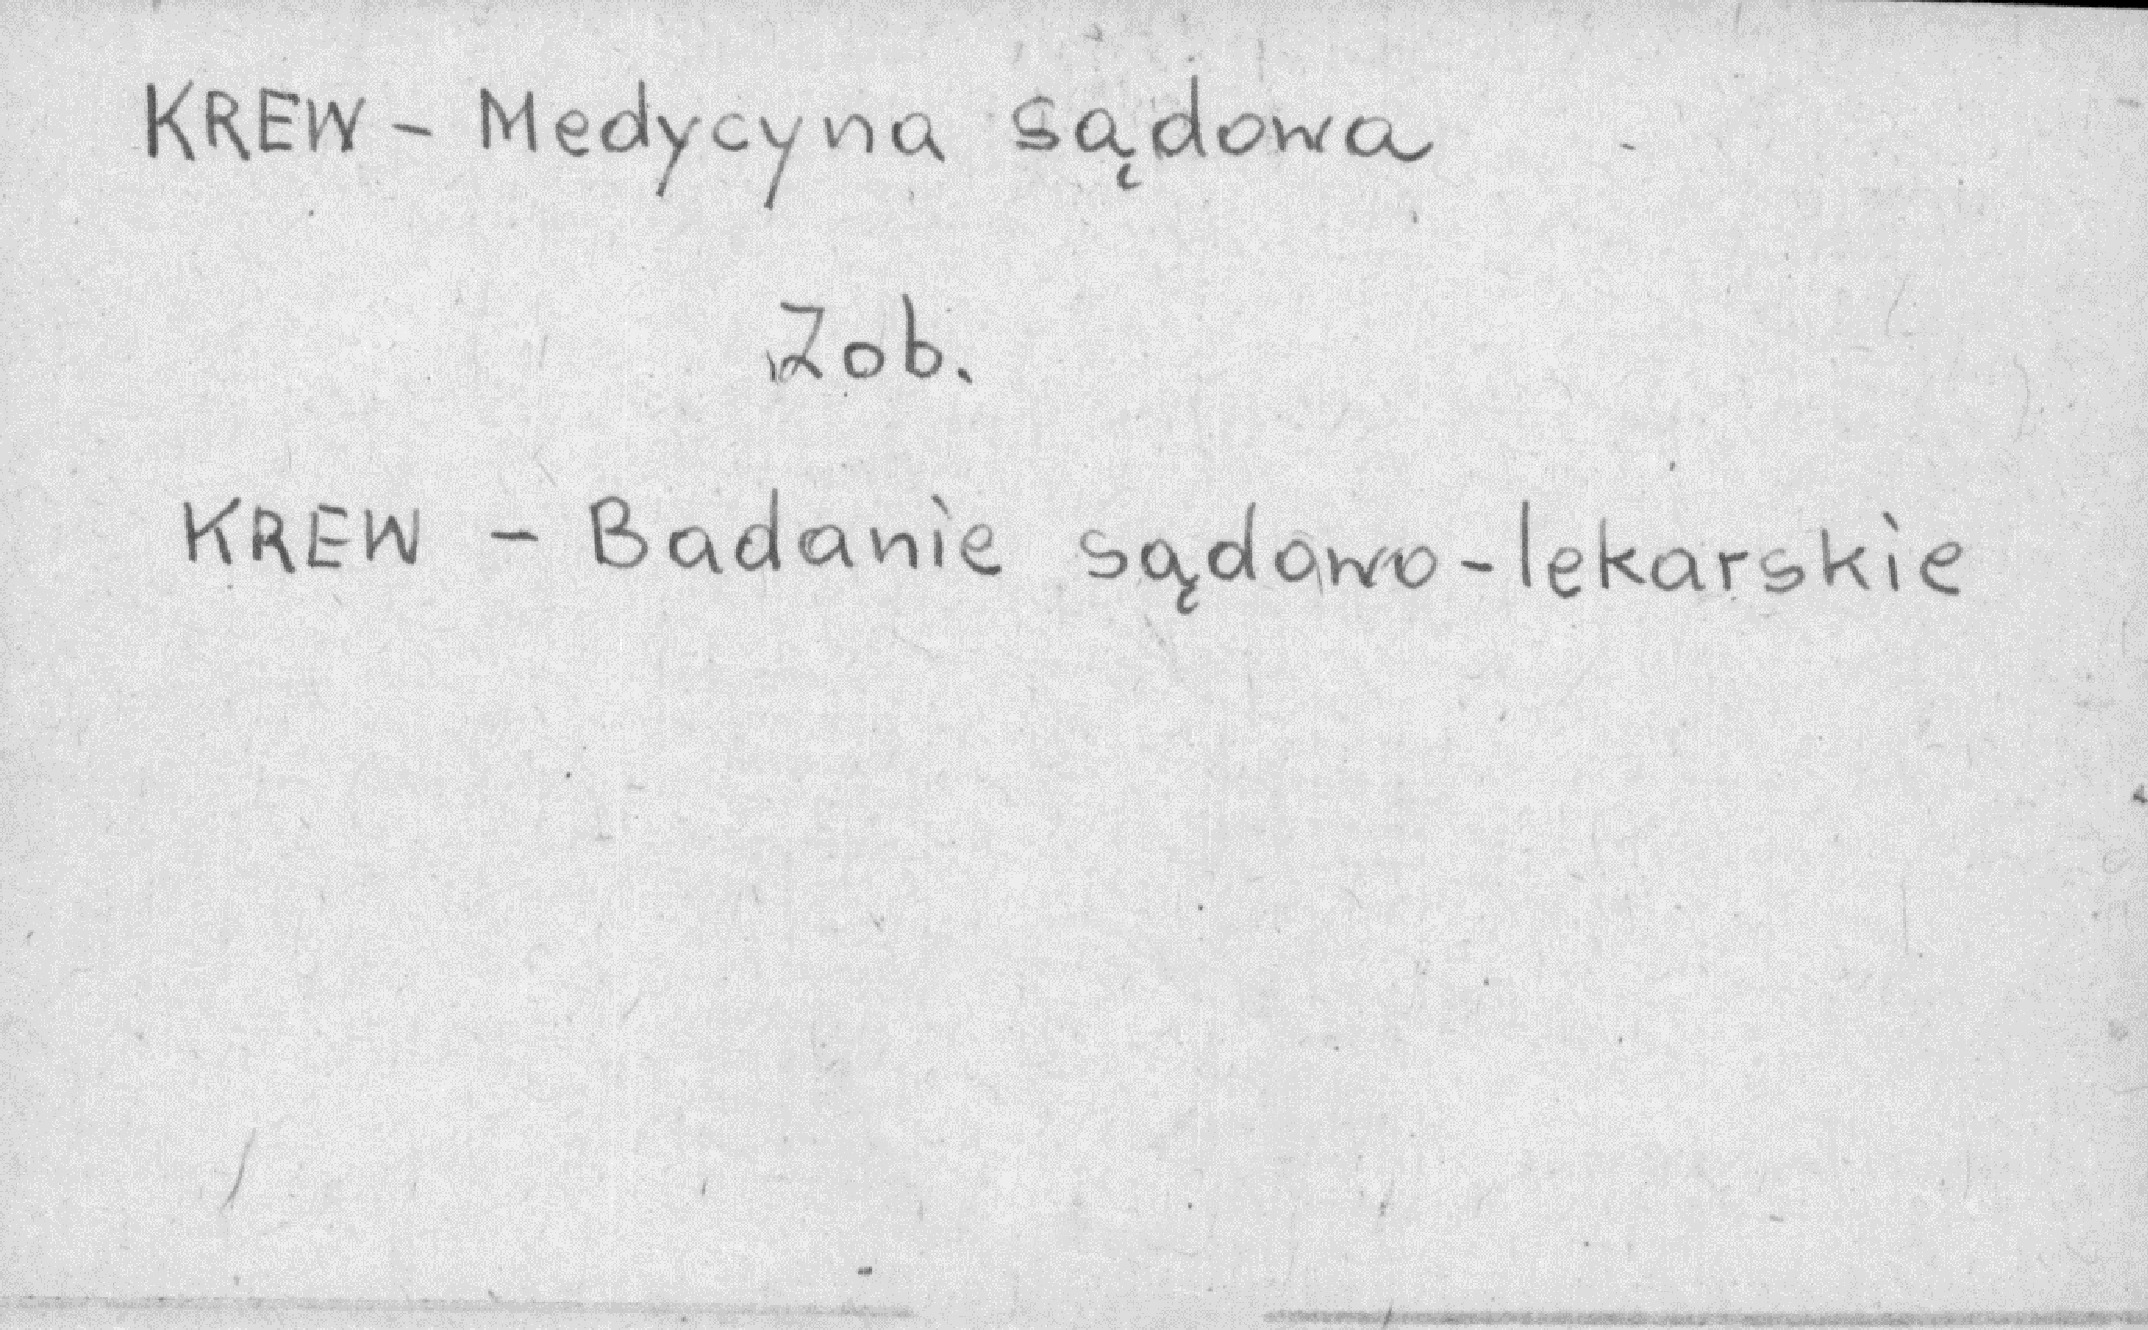 KREW - Medycyna sądowa
Zob.
KREW - Badanie sądowo-lekarskie